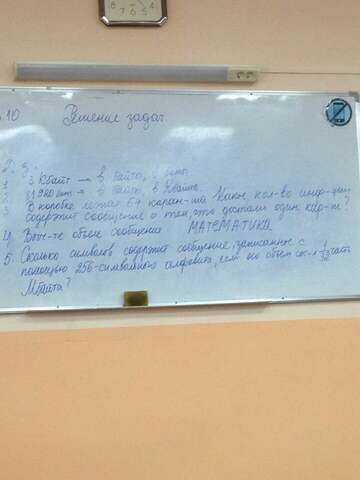 10 Решение задач
1. 3 Кбайт → в байты, в биты
2. 
3. В коробке лежат 64 каран-ша. Какое кол-во инф-ции
содержит сообщение о том, что достали один кар-ш?
4. Выч-те объем сообщения МАТЕМАТИКА
5. Сколько символов содержит сообщение, записанное с
помощью 256-символьного алфавита, если его объем 1/32 часть
Мбайта?